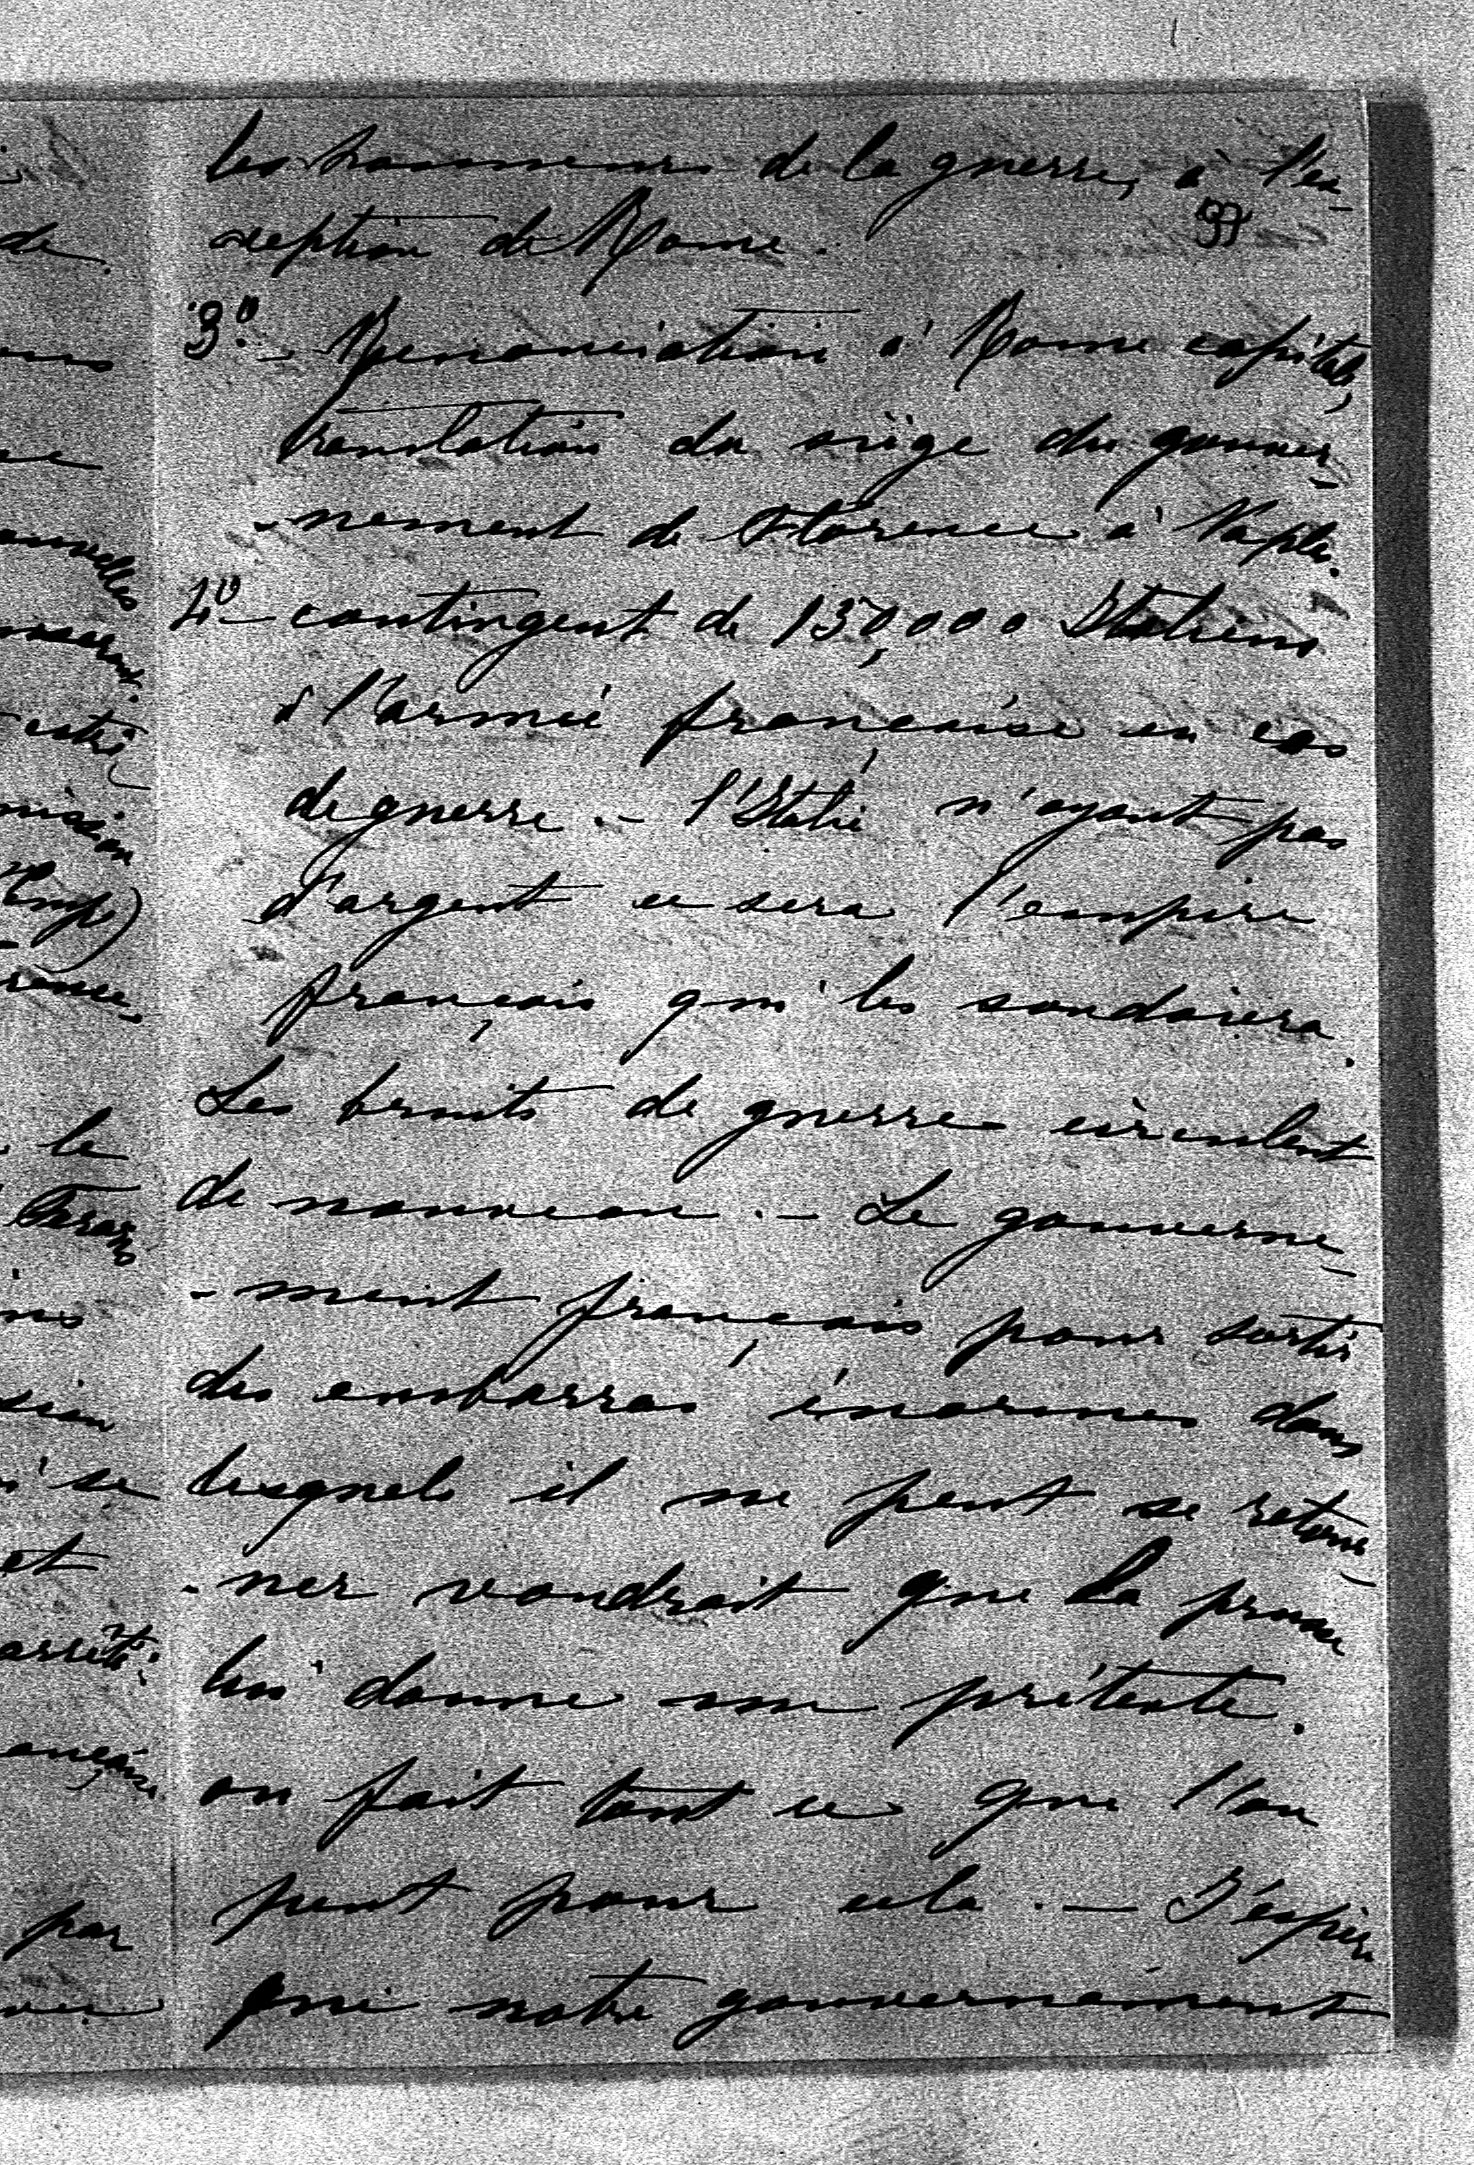 les honneurs de la guerre, à l'ex-
99
ception de Rome.
3º - Renonciation à Rome capitale,
translation du siège du gouver-
-nement de Florence à Naples.
4º - contingent de 130,000 Italiens
à l'armée française en cas
de guerre. - l'Italie n'ayant pas
d'argent ce sera l'empire
français qui les soudoiera.
Les bruits de guerre circulent
de nouveau. - Le gouverne-
-ment français pour sortir
des embarras énormes dans
lesquels il ne peut se retour-
-ner voudrait que la Prusse
lui donne un prétexte.
on fait tout ce que l'on
peut pour cela. - J'espère
que notre gouvernement